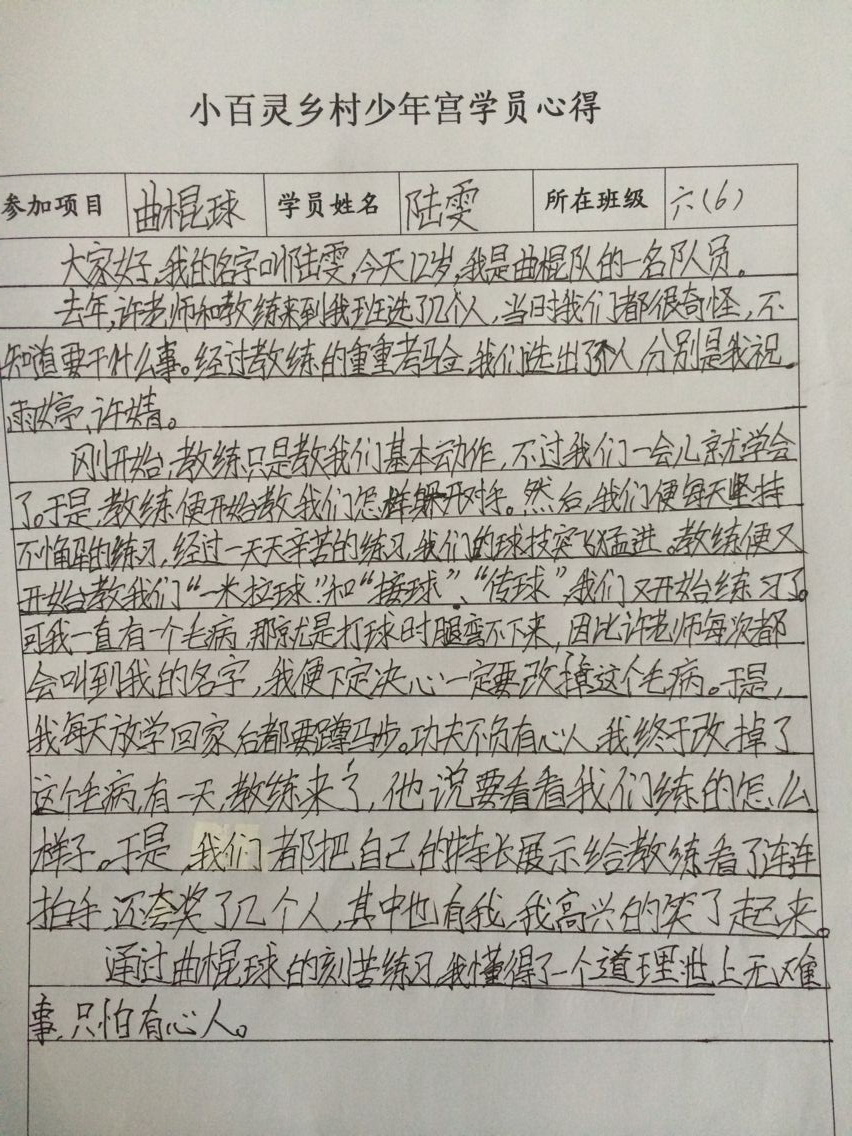 小百灵乡村少年宫学员心得
参加项目 曲棍球 学员姓名 陆雯 所在班级 六(6)
大家好,我的名字叫陆雯,今天12岁,我是曲棍队的一名队员。
去年,许老师和教练来到我班选了几个人,当时我们都很奇怪,不
知道要干什么事。经过教练的重重考验,我们选出了个人,分别是我、祝
雨婷、许婧。
刚开始,教练只是教我们基本动作,不过我们一会儿就学会
了。于是,教练便开始教我们怎样躲开对手。然后,我们便每天坚持
不懈的练习,经过一天天辛苦的练习,我们的球技突飞猛进。教练便又
开始教我们“一米拉球”和“接球”、“传球”,我们又开始练习了。
可我一直有一个毛病,那就是打球时腿弯不下来,因此许老师每次都
会叫到我的名字,我便下定决心一定要改掉这个毛病。于是,
我每天放学回家后都要蹲马步。功夫不负有心人,我终于改掉了
这个毛病,有一天,教练来了,他说要看看我们练的怎么
样子。于是,我们都把自己的特长展示给教练看了连连
拍手,还夸奖了几个人,其中也有我,我高兴的笑了起来。
通过曲棍球的刻苦练习,我懂得了一个道理:世上无难
事,只怕有心人。